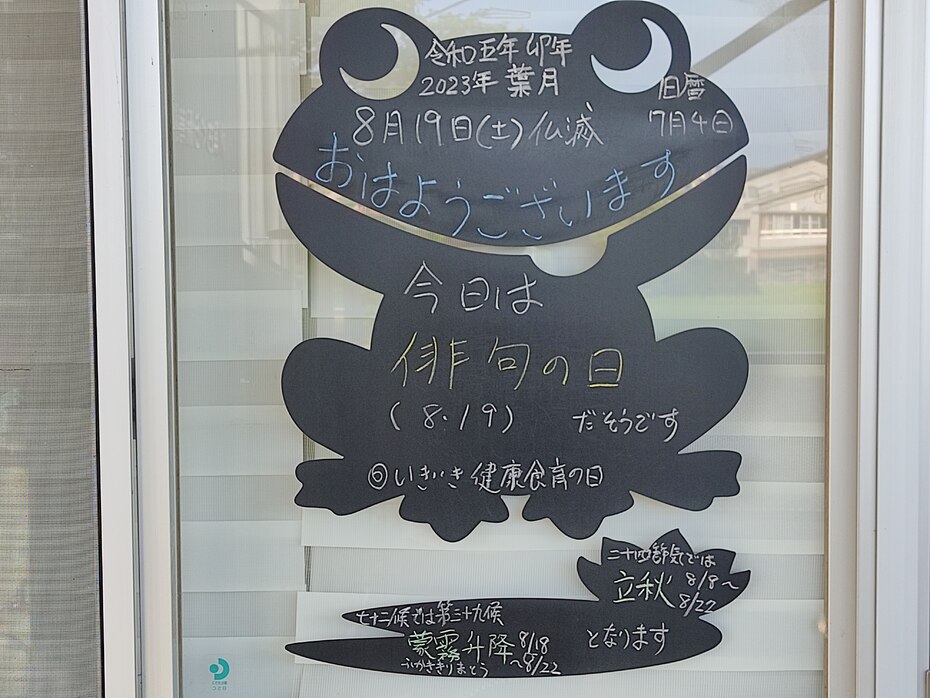 令和五年 卯年
2023年 葉月
旧暦
8月19日(土) 仏滅
7月4日
おはようございます
今日は
俳句の日
(8.19)
だそうです
◎いきいき健康食育の日
二十四節気では
立秋 8/8～
8/22
七十二候では第三十九候
蒙霧升降 8/18
～8/22
ふかききりまとう
となります